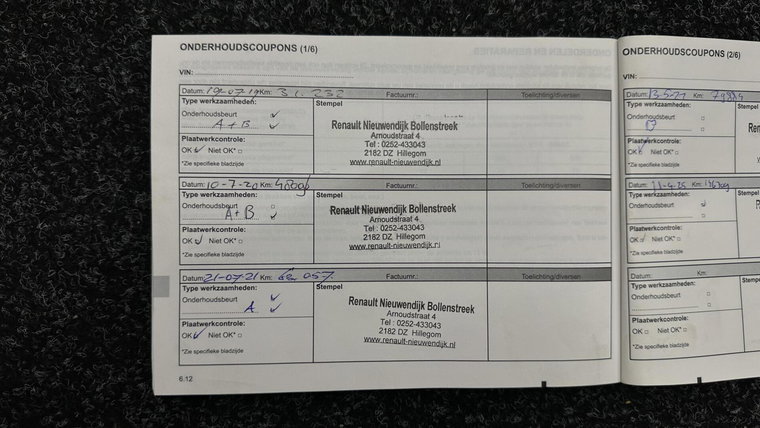 ONDERHOUDSCOUPONS (1/6)
VIN:
Datum: 19-07-19 Km: 31.232 Factuurnr.: Toelichting/diversen
Type werkzaamheden: Stempel
Onderhoudsbeurt
A+B
Plaatwerkcontrole:
OK Niet OK*
*Zie specifieke bladzijde
Renault Nieuwendijk Bollenstreek
Arnoudstraat 4
Tel : 0252-433043
2182 DZ Hillegom
www.renault-nieuwendijk.nl
Datum: 10-7-20 Km: Factuurnr.: Toelichting/diversen
Type werkzaamheden: Stempel
Onderhoudsbeurt
A+B
Plaatwerkcontrole:
OK Niet OK*
*Zie specifieke bladzijde
Renault Nieuwendijk Bollenstreek
Arnoudstraat 4
Tel : 0252-433043
2182 DZ Hillegom
www.renault-nieuwendijk.nl
Datum: 21-07-21 Km: 057 Factuurnr.: Toelichting/diversen
Type werkzaamheden: Stempel
Onderhoudsbeurt
A
Plaatwerkcontrole:
OK Niet OK*
*Zie specifieke bladzijde
Renault Nieuwendijk Bollenstreek
Arnoudstraat 4
Tel : 0252-433043
2182 DZ Hillegom
www.renault-nieuwendijk.nl
6.12
ONDERHOUDSCOUPONS (2/6)
VIN:
Datum: Km:
Type werkzaamheden: Stempel
Onderhoudsbeurt
Plaatwerkcontrole:
OK Niet OK*
*Zie specifieke bladzijde
Datum: Km:
Type werkzaamheden: Stempel
Onderhoudsbeurt
Plaatwerkcontrole:
OK Niet OK*
*Zie specifieke bladzijde
Datum: Km:
Type werkzaamheden: Stempel
Onderhoudsbeurt
Plaatwerkcontrole:
OK Niet OK*
*Zie specifieke bladzijde